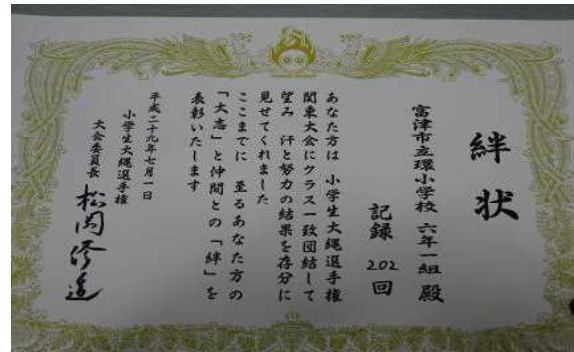 絆状
富津市立環小学校 六年一組 殿
記録 202回
あなた方は 小学生大縄選手権
関東大会にクラス一致団結して
望み 汗と努力の結果を存分に
見せてくれました
ここまでに 至るあなた方の
「大志」と仲間との「絆」を
表彰いたします
平成二十九年七月一日
小学生大縄選手権
大会委員長 松岡修造